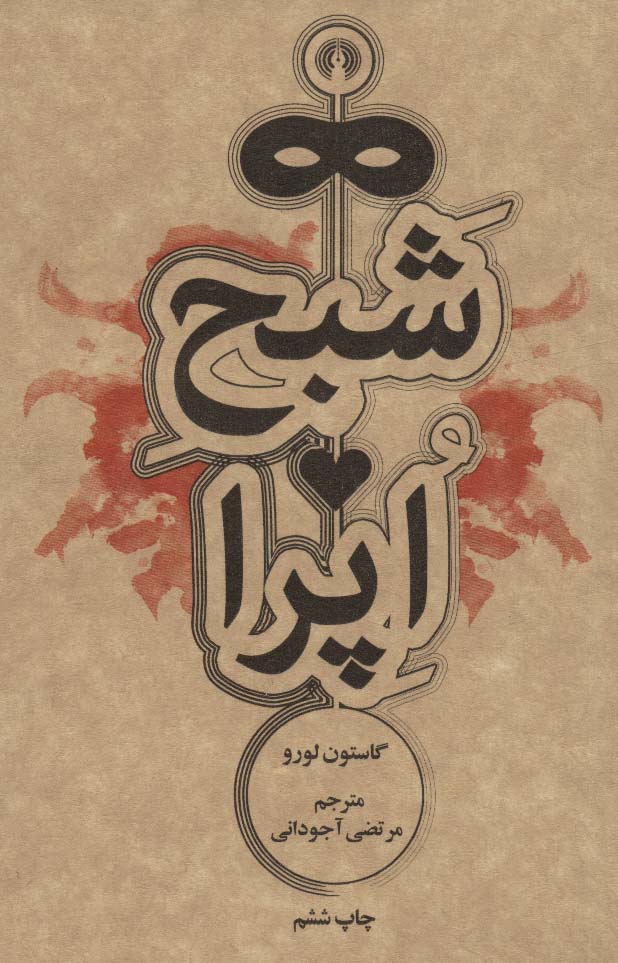 شَبح
اُپِرا
گاستون لورو
مترجم
مرتضی آجودانی
چاپ ششم